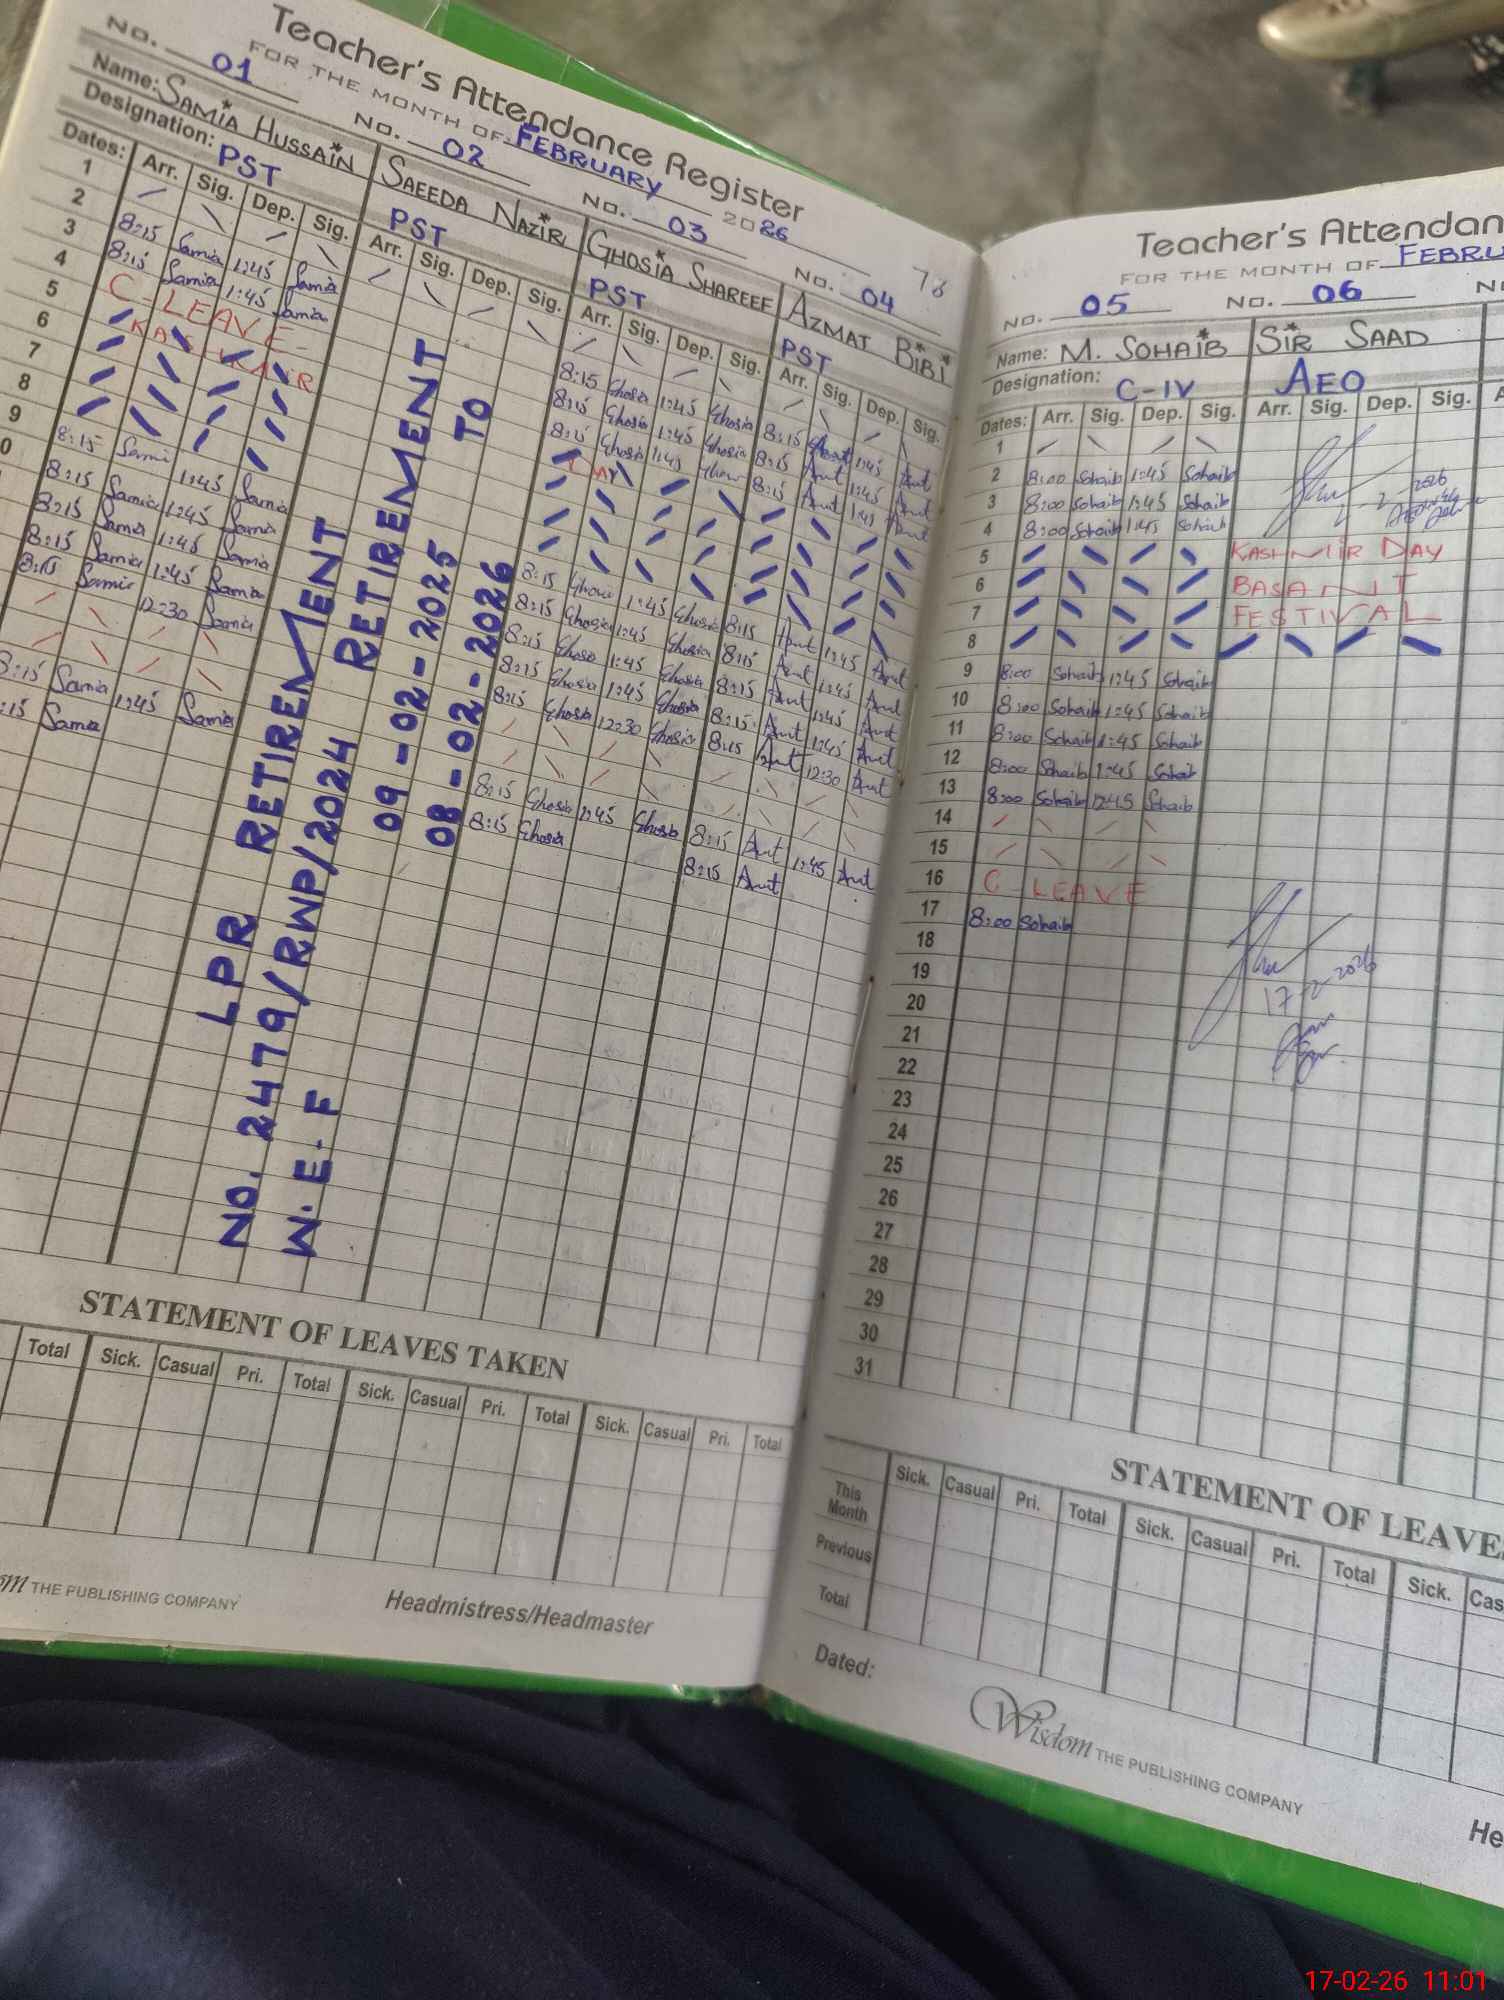 Teacher's Attendance Register
FOR THE MONTH OF FEBRUARY 2026
No. 01 No. 02 No. 03 No. 04 78
Name: SAMIA HUSSAIN SAEEDA NAZIR GHOSIA SHAREEF AZMAT BIBI
Designation: PST PST PST PST
Dates: Arr. Sig. Dep. Sig. Arr. Sig. Dep. Sig. Arr. Sig. Dep. Sig. Arr. Sig. Dep. Sig.
1
2 8:15 Samia 1:45 Samia 8:15 Ghosia 1:45 Ghosia 8:15 1:45
3 8:15 Samia 1:45 Samia 8:15 Ghosia 1:45 Ghosia 8:15 1:45
4 C-LEAVE 8:15 Ghosia 1:45 8:15 1:45
5 KASHMIR DAY
6
7
8
9 8:15 1:45 Samia 8:15 1:45 Ghosia 8:15 1:45
0 8:15 Samia 1:45 Samia 8:15 Ghosia 1:45 Ghosia 8:15 1:45
8:15 Samia 1:45 Samia 8:15 1:45 Ghosia 8:15 1:45
8:15 Samia 1:45 Samia 8:15 Ghosia 1:45 Ghosia 8:15 1:45
8:15 Samia 12:30 Samia 8:15 Ghosia 12:30 Ghosia 8:15 12:30
8:15 Samia 1:45 Samia 8:15 Ghosia 1:45 Ghosia 8:15 1:45
:15 Samia 8:15 Ghosia 8:15
LPR RETIREMENT
NO. 2479/RWP/2024 RETIREMENT
W.E.F 09-02-2025 TO
08-02-2026
STATEMENT OF LEAVES TAKEN
Total Sick. Casual Pri. Total Sick. Casual Pri. Total Sick. Casual Pri. Total
THE PUBLISHING COMPANY
Headmistress/Headmaster
Teacher's Attendan
FOR THE MONTH OF FEBRU
No. 05 No. 06 N
Name: M. SOHAIB SIR SAAD
Designation: C-IV AEO
Dates: Arr. Sig. Dep. Sig. Arr. Sig. Dep. Sig. A
1
2 8:00 Sohaib 1:45 Sohaib
3 8:00 Sohaib 1:45 Sohaib
4 8:00 Sohaib 1:45 Sohaib
5 KASHMIR DAY
6 BASANT
7 FESTIVAL
8
9 8:00 Sohaib 1:45 Sohaib
10 8:00 Sohaib 1:45 Sohaib
11 8:00 Sohaib 1:45 Sohaib
12 8:00 Sohaib 1:45 Sohaib
13 8:00 Sohaib 12:45 Sohaib
14
15
16 C-LEAVE
17 8:00 Sohaib
18
19 17-2-2026
20
21
22
23
24
25
26
27
28
29
30
31
STATEMENT OF LEAVE
Sick. Casual Pri. Total Sick. Casual Pri. Total Sick. Cas
This Month
Previous
Total
Dated:
Wisdom THE PUBLISHING COMPANY
He
17-02-26 11:01